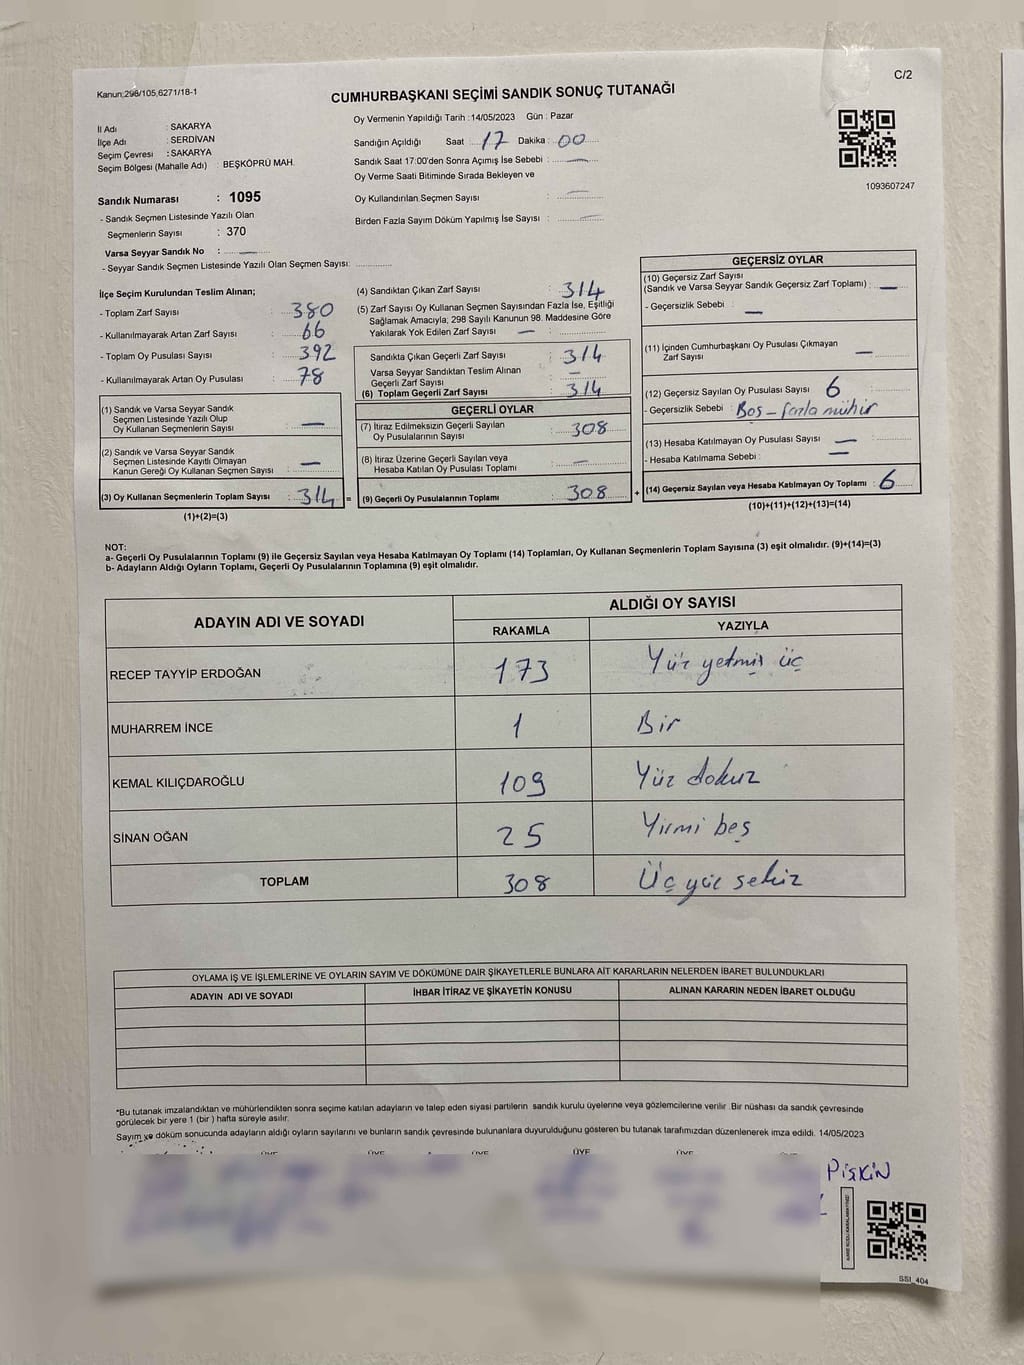 C/2
Kanun:298/105,6271/18-1
CUMHURBAŞKANI SEÇİMİ SANDIK SONUÇ TUTANAĞI
İl Adı : SAKARYA
İlçe Adı : SERDİVAN
Seçim Çevresi : SAKARYA
Seçim Bölgesi (Mahalle Adı) : BEŞKÖPRÜ MAH.
Sandık Numarası : 1095
- Sandık Seçmen Listesinde Yazılı Olan
Seçmenlerin Sayısı : 370
Varsa Seyyar Sandık No :
- Seyyar Sandık Seçmen Listesinde Yazılı Olan Seçmen Sayısı:
Oy Vermenin Yapıldığı Tarih :14/05/2023 Gün : Pazar
Sandığın Açıldığı Saat 17 Dakika : 00
Sandık Saat 17:00'den Sonra Açımış İse Sebebi : —
Oy Verme Saati Bitiminde Sırada Bekleyen ve
Oy Kullandırılan Seçmen Sayısı : —
Birden Fazla Sayım Döküm Yapılmış İse Sayısı : —
1093607247
İlçe Seçim Kurulundan Teslim Alınan;
- Toplam Zarf Sayısı : 380
- Kullanılmayarak Artan Zarf Sayısı : 66
- Toplam Oy Pusulası Sayısı : 392
- Kullanılmayarak Artan Oy Pusulası : 78
(1) Sandık ve Varsa Seyyar Sandık
Seçmen Listesinde Yazılı Olup
Oy Kullanan Seçmenlerin Sayısı : —
(2) Sandık ve Varsa Seyyar Sandık
Seçmen Listesinde Kayıtlı Olmayan
Kanun Gereği Oy Kullanan Seçmen Sayısı : —
(3) Oy Kullanan Seçmenlerin Toplam Sayısı : 314 =
(1)+(2)=(3)
(4) Sandıktan Çıkan Zarf Sayısı : 314
(5) Zarf Sayısı Oy Kullanan Seçmen Sayısından Fazla İse, Eşitliği
Sağlamak Amacıyla; 298 Sayılı Kanunun 98. Maddesine Göre
Yakılarak Yok Edilen Zarf Sayısı — :
Sandıkta Çıkan Geçerli Zarf Sayısı : 314
Varsa Seyyar Sandıktan Teslim Alınan
Geçerli Zarf Sayısı : —
(6) Toplam Geçerli Zarf Sayısı : 314
GEÇERLİ OYLAR
(7) İtiraz Edilmeksizin Geçerli Sayılan
Oy Pusulalarının Sayısı : 308
(8) İtiraz Üzerine Geçerli Sayılan veya
Hesaba Katılan Oy Pusulası Toplamı : —
(9) Geçerli Oy Pusulalarının Toplamı : 308 +
GEÇERSİZ OYLAR
(10) Geçersiz Zarf Sayısı
(Sandık ve Varsa Seyyar Sandık Geçersiz Zarf Toplamı) : —
- Geçersizlik Sebebi : —
(11) İçinden Cumhurbaşkanı Oy Pusulası Çıkmayan
Zarf Sayısı —
(12) Geçersiz Sayılan Oy Pusulası Sayısı 6
- Geçersizlik Sebebi : Boş - fazla mühür
(13) Hesaba Katılmayan Oy Pusulası Sayısı —
- Hesaba Katılmama Sebebi : —
(14) Geçersiz Sayılan veya Hesaba Katılmayan Oy Toplamı : 6
(10)+(11)+(12)+(13)=(14)
NOT:
a- Geçerli Oy Pusulalarının Toplamı (9) ile Geçersiz Sayılan veya Hesaba Katılmayan Oy Toplamı (14) Toplamları, Oy Kullanan Seçmenlerin Toplam Sayısına (3) eşit olmalıdır. (9)+(14)=(3)
b- Adayların Aldığı Oyların Toplamı, Geçerli Oy Pusulalarının Toplamına (9) eşit olmalıdır.
ADAYIN ADI VE SOYADI ALDIĞI OY SAYISI
RAKAMLA YAZIYLA
RECEP TAYYİP ERDOĞAN 173 Yüz yetmiş üç
MUHARREM İNCE 1 Bir
KEMAL KILIÇDAROĞLU 109 Yüz dokuz
SİNAN OĞAN 25 Yirmi beş
TOPLAM 308 Üç yüz sekiz
OYLAMA İŞ VE İŞLEMLERİNE VE OYLARIN SAYIM VE DÖKÜMÜNE DAİR ŞİKAYETLERLE BUNLARA AİT KARARLARIN NELERDEN İBARET BULUNDUKLARI
ADAYIN ADI VE SOYADI İHBAR İTİRAZ VE ŞİKAYETİN KONUSU ALINAN KARARIN NEDEN İBARET OLDUĞU
*Bu tutanak imzalandıktan ve mühürlendikten sonra seçime katılan adayların ve talep eden siyasi partilerin sandık kurulu üyelerine veya gözlemcilerine verilir .Bir nüshası da sandık çevresinde
görülecek bir yere 1 (bir ) hafta süreyle asılır.
Sayım ve döküm sonucunda adayların aldığı oyların sayılarını ve bunların sandık çevresinde bulunanlara duyurulduğunu gösteren bu tutanak tarafımızdan düzenlenerek imza edildi. 14/05/2023
ÜYE ÜYE ÜYE ÜYE ÜYE
PİŞKİN
SSI_404